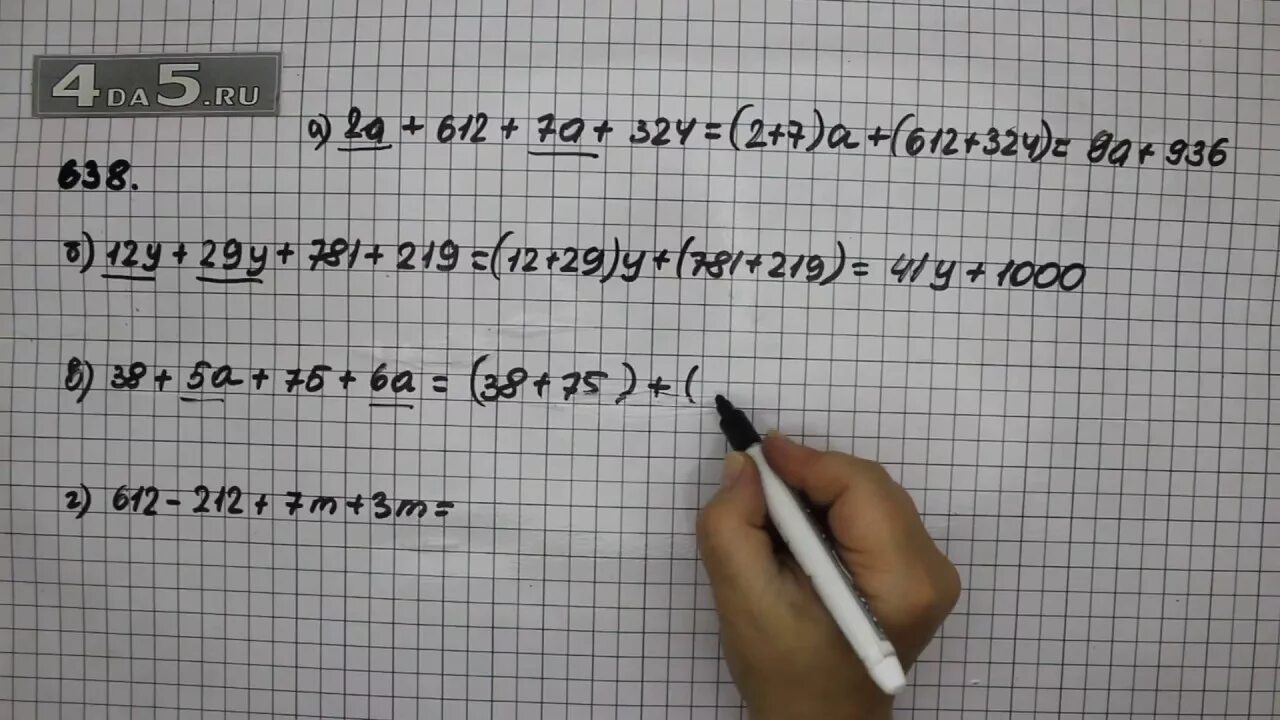 4DA5.RU
а) 2a + 612 + 7a + 324 = (2+7)a + (612+324) = 9a + 936
638.
б) 12y + 29y + 781 + 219 = (12+29)y + (781+219) = 41y + 1000
в) 38 + 5a + 75 + 6a = (38 + 75) + (
г) 612 - 212 + 7m + 3m =